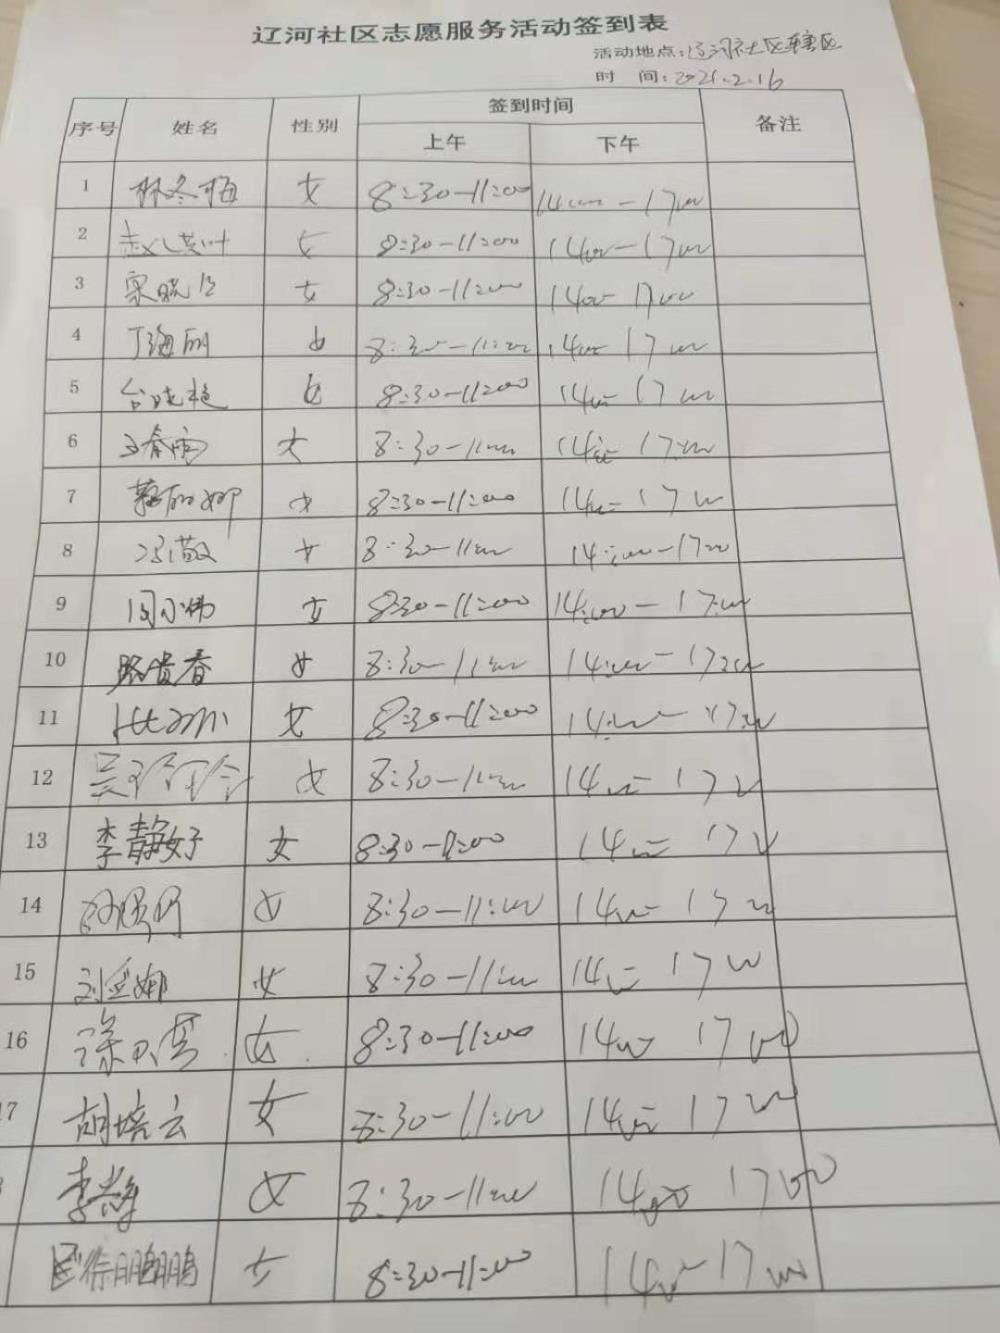 辽河社区志愿服务活动签到表
活动地点:辽河社区辖区
时 间:2021.2.16
序号 姓名 性别 签到时间 备注
上午 下午
1 林冬梅 女 8:30-11:00 14:00-17:00
2 女 8:30-11:00 14:00-17:00
3 女 8:30-11:00 14:00-17:00
4 丁海丽 女 8:30-11:00 14:00-17:00
5 女 8:30-11:00 14:00-17:00
6 王春雨 女 8:30-11:00 14:00-17:00
7 女 8:30-11:00 14:00-17:00
8 冯敬 女 8:30-11:00 14:00-17:00
9 女 8:30-11:00 14:00-17:00
10 路贵春 女 8:30-11:00 14:00-17:00
11 女 8:30-11:00 14:00-17:00
12 吴玲玲 女 8:30-11:00 14:00-17:00
13 李静好 女 8:30-11:00 14:00-17:00
14 女 8:30-11:00 14:00-17:00
15 女 8:30-11:00 14:00-17:00
16 女 8:30-11:00 14:00-17:00
17 胡培云 女 8:30-11:00 14:00-17:00
李静 女 8:30-11:00 14:00-17:00
徐鹏鹏 女 8:30-11:00 14:00-17:00